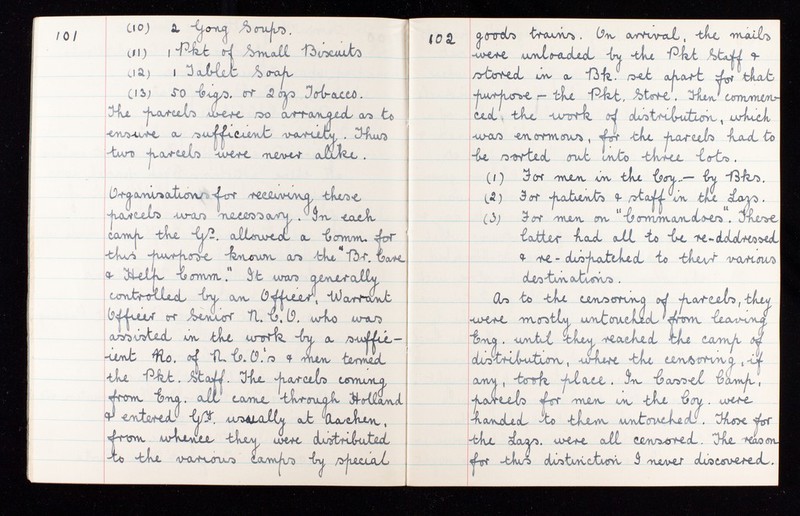 101
(10) 2 Gong Soups.
(11) 1 Pkt of Small Biscuits
(12) 1 Tablet Soap
(13) 50 Cigs. or 2 ozs Tobacco.
The parcels were so arranged as to
ensure a sufficient variety. Thus
two parcels were never alike.
Organisation for receiving these
parcels was necessary. In each
camp the Gs. allowed a Comm. for
this purpose known as the "Br. Care
& Help Comm." It was generally
controlled by an Officer, Warrant
Officer or Senior N.C.O. who was
assisted in the work by a suffic-
ient No. of N.C.O.'s & men termed
the Pkt. Staff. The parcels coming
from Eng. all came through Holland
& entered Gy. usually at Aachen,
from whence they were distributed
to the various camps by special
102
goods trains. On arrival, the mails
were unloaded by the Pkt Staff &
stored in a Bk. set apart for that
purpose – the Pkt. Store. Then commen-
ced the work of distribution, which
was enormous, for the parcels had to
be sorted out into three lots.
(1) For men in the Coy. – by Bks.
(2) For patients & staff in the Lazs.
(3) For men on "Commandoes". These
latter had all to be re-dddressed
& re-dispatched to their various
destinations.
As to the censoring of parcels, they
were mostly untouched from leaving
Eng. until they reached the camp of
distribution, where the censoring, if
any, took place. In Cassel Camp,
parcels for men in the Coy. were
handed to them untouched. Those for
the Lazs. were all censored. The reason
for this distinction I never discovered.